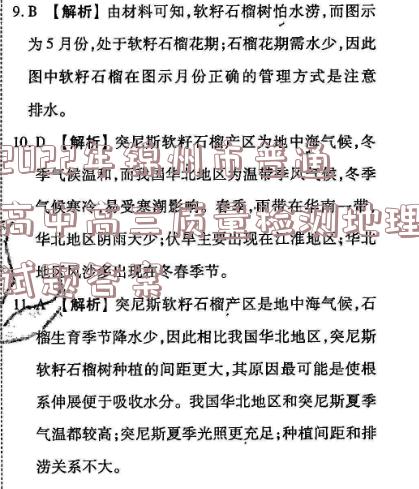 9. B 【解析】由材料可知,软籽石榴树怕水涝,而图示
为5月份,处于软籽石榴花期;石榴花期需水少,因此
图中软籽石榴在图示月份正确的管理方式是注意
排水。
10. D 【解析】突尼斯软籽石榴产区为地中海气候,冬
季气候温和,而我国华北地区为温带季风气候,冬季
气候寒冷,易受寒潮影响。春季,雨带在华南一带,
华北地区阴雨天少;伏旱主要出现在江淮地区;华北
地区风沙多出现在冬春季节。
11. A 【解析】突尼斯软籽石榴产区是地中海气候,石
榴生育季节降水少,因此相比我国华北地区,突尼斯
软籽石榴树种植的间距更大,其原因最可能是使根
系伸展便于吸收水分。我国华北地区和突尼斯夏季
气温都较高;突尼斯夏季光照更充足;种植间距和排
涝关系不大。
2022年锦州市普通
高中高三质量检测地理
试题答案